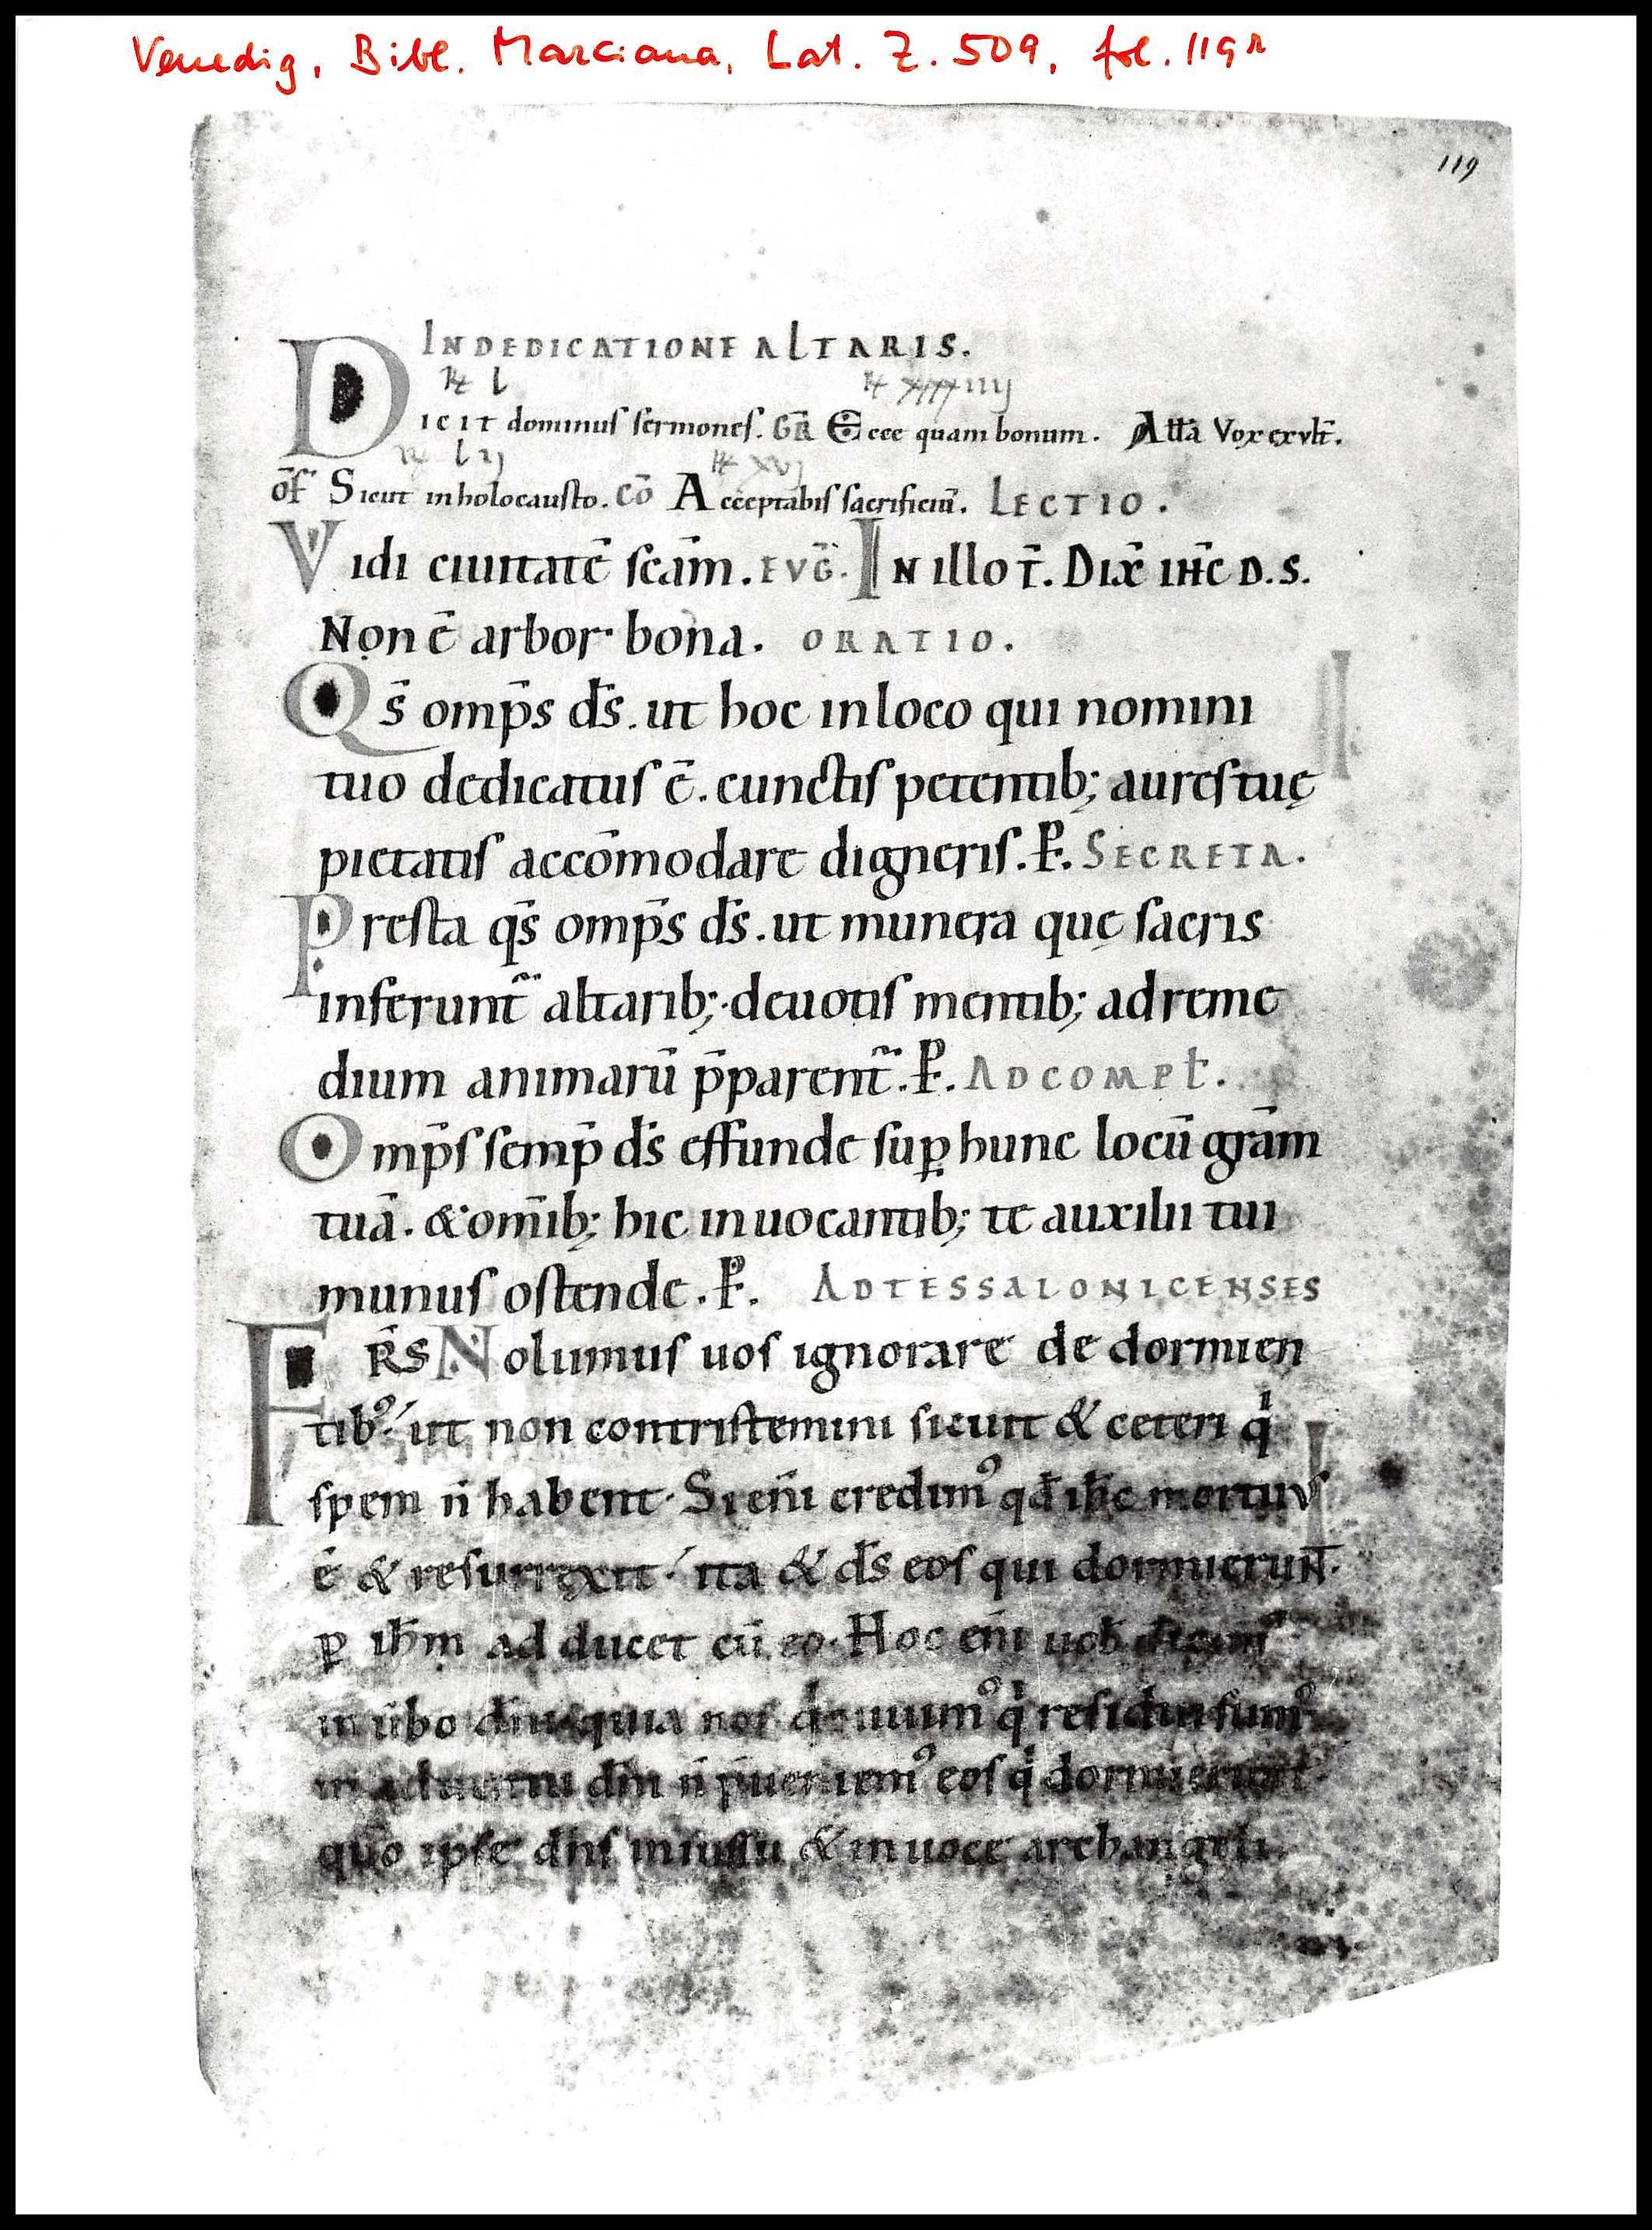 Venedig, Bibl. Marciana, Lat. Z. 509, fol. 119r
119
IN DEDICATIONE ALTARIS.
DICIT dominus sermones. GR̄ Ecce quam bonum. All̄a Vox exult̄.
of̄ Sicut in holocausto. Cō Acceptabis sacrificiū. LECTIO.
Vidi ciuitatē scām. EVḠ. IN illo t̄. Dix̄ IHC̄ D.S.
Non ē arbor bona. ORATIO.
Qs̄ omp̄s d̄s. ut hoc in loco qui nomini
tuo dedicatus ē. cunctis petentib; aures tuę
pietatis accōmodare digneris. P. SECRETA.
Presta qs̄ omp̄s d̄s. ut munera quę sacris
inferunt̄ altarib; deuotis mentib; ad reme
dium animarū p̄parent̄. P. AD COMPL̄.
Omp̄s semp̄ d̄s effunde suꝑ hunc locū grām
tuā. & om̄ib; hic inuocantib; te auxilii tui
munus ostende. P. AD TESSALONICENSES
FR̄S Nolumus uos ignorare de dormien
tibꝰ ut non contristemini sicut & ceteri q̇
spem n̄ habent. Si en̄i credimꝰ qd̄ ih̄c mortuus
ē & resurrexit ita & d̄s eos qui dormierunt̄.
ꝑ ih̄m ad ducet cū eo. Hoc en̄i uob̄
in ūbo dn̄i quia nos uiuimꝰ q̇ residui sumꝰ
in aduentu dn̄i n̄ p̄ueniemꝰ eos q̇ dormierunt
quō ipse dn̄s in iussu & in uoce archangeli